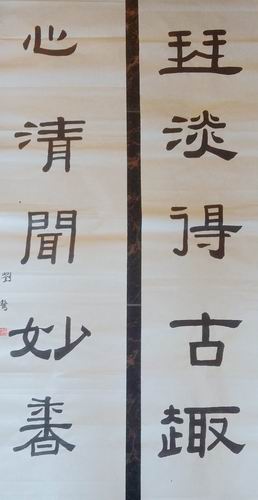 珡淡得古趣
心清聞妙香
劉